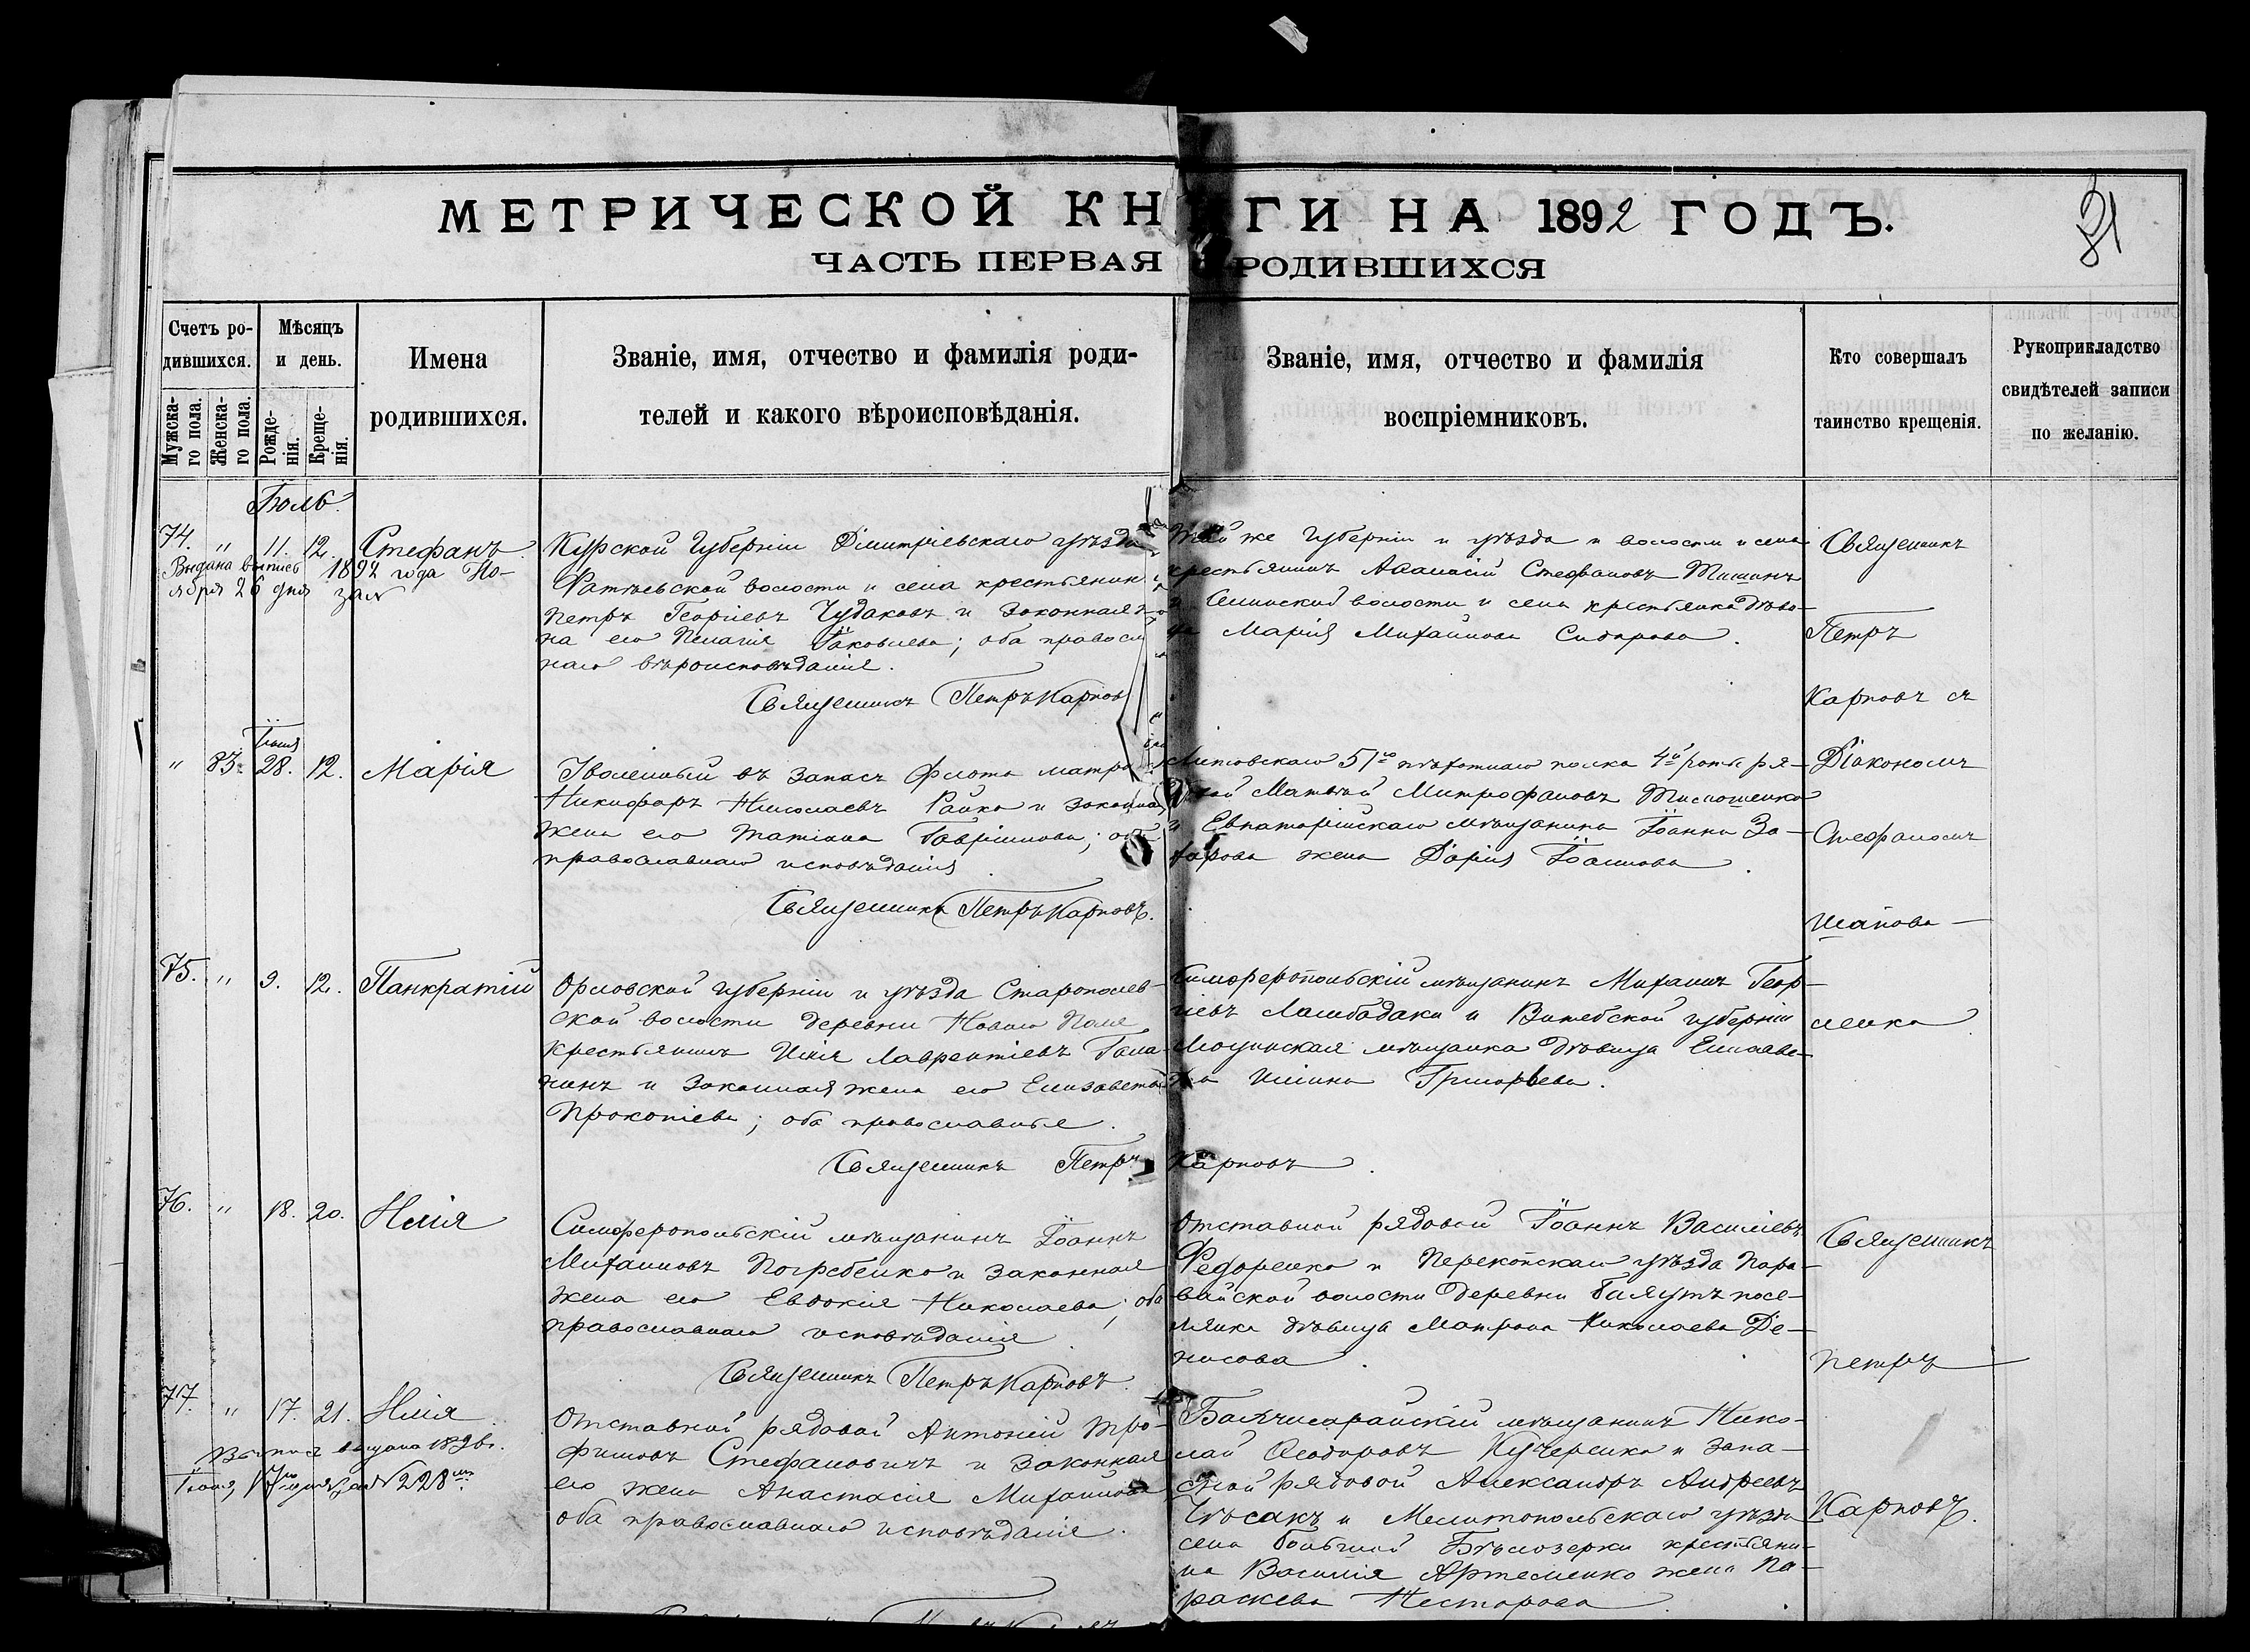 МЕТРИЧЕСКОЙ КНИГИ НА 1892 ГОДЪ.
ЧАСТЬ ПЕРВАЯ РОДИВШИХСЯ
81
Счетъ ро-
дившихся.
Мужска-
го пола.
Женска-
го пола.
Мѣсяцъ
и день.
Рожде-
нія.
Креще-
нія.
Имена
родившихся.
Званіе, имя, отчество и фамилія роди-
телей и какого вѣроисповѣданія.
Званіе, имя, отчество и фамилія
воспріемниковъ.
Кто совершалъ
таинство крещенія.
Рукоприкладство
свидѣтелей записи
по желанію.
Іюль.
74. " 11. 12. Стефанъ
Выдана выпись 1892 года Но-
ября 26 дня за №
Курской Губерніи Димитріевскаго уѣзда
Фатѣевской волости и села крестьянинъ
Петръ Георгіевъ Чудаковъ и законная
на его Пелагія Іаковлева; оба правосл
наго вѣроисповѣданія.
Священникъ Петръ Карповъ
Той же Губерніи и уѣзда и волости и села
крестьянинъ Аѳанасій Стефановъ Тишинъ
волости и села крестьянка дѣви-
ца Марія Михайлова Сидорова.
Священникъ
Петръ
Карповъ съ
Діакономъ
Стефаномъ
Шапова-
ленко
Іюня
" 83. 28. 12. Марія
Уволенный въ запасъ флота матросъ
Никифоръ Николаевъ Райко и законная
жена его Татіана Гавріилова; оба
православнаго исповѣданія.
Священникъ Петръ Карповъ.
Литовскаго 51го пѣхотнаго полка 4й роты ря-
довой Матвѣй Митрофановъ Тимошенко
и Евпаторійскаго мѣщанина Іоанна За-
харова жена Дарія Іоаннова.
75. " 9. 12. Панкратій
Орловской губерніи и уѣзда Старополев-
ской волости деревни Новаго Поля
крестьянинъ Илія Лаврентіевъ Гала-
нинъ и законная жена его Елизавета
Прокопіева; оба православные.
Священникъ Петръ Карповъ.
Симферопольскій мѣщанинъ Михаилъ Геор-
гіевъ Ламбадаки и Витебской губерніи
мѣщанка дѣвица Елизаве-
та Илліина Григорьева.
76. " 18. 20. Илія
Симферопольскій мѣщанинъ Іоаннъ
Михаиловъ Погребенко и законная
жена его Евдокія Николаева; оба
православнаго исповѣданія
Священникъ Петръ Карповъ.
Отставной рядовой Іоаннъ Василіевъ
Федоренко и Перекопскаго уѣзда
волости деревни посе-
лянка дѣвица Матрона Николаева Де-
нисова.
Священникъ
Петръ
Карповъ.
77. " 17. 21. Илія
Выпись выдана 189 г.
Іюня, 17го дня за № 228мъ
Отставной рядовой Антоній Тро-
фимовъ Стефановичъ и законная
его жена Анастасія Михайлова
оба православнаго исповѣданія.
Бахчисарайскій мѣщанинъ Нико-
лай Ѳеодоровъ Кучеренко и запа-
сной рядовой Александръ Андреевъ
Чѣсакъ и Мелитопольскаго уѣзда
села Большой Бѣлозерки крестьяни-
на Василія Артеменко жена Па-
раскева Несторова.